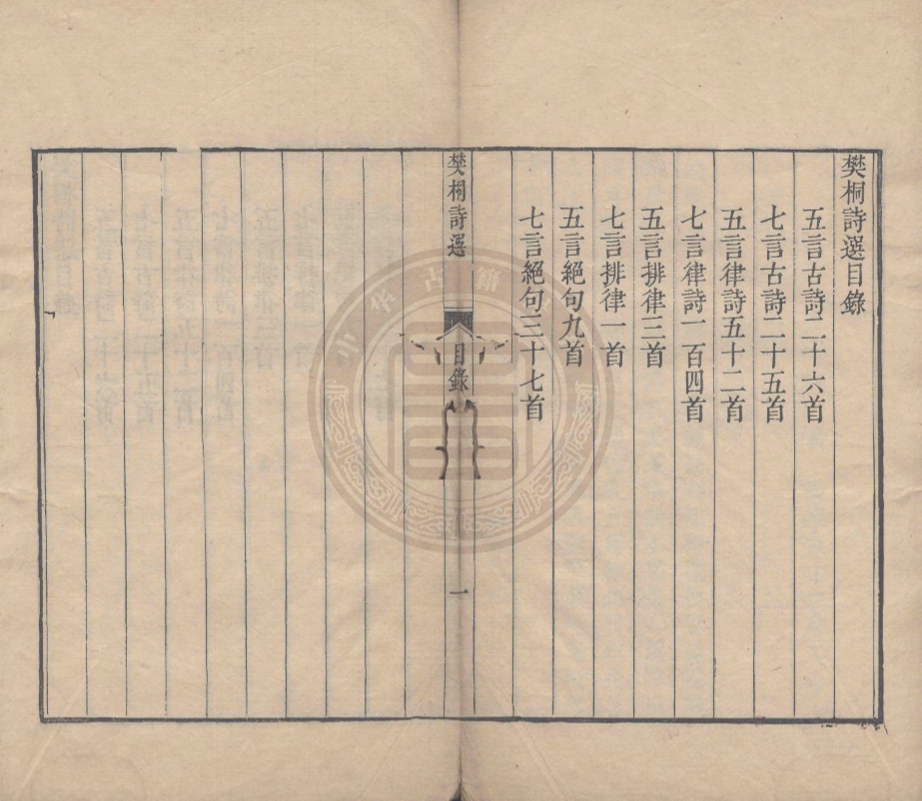 樊桐詩選目錄
五言古詩二十六首
七言古詩二十五首
五言律詩五十二首
七言律詩一百四首
五言排律三首
七言排律一首
五言絕句九首
七言絕句三十七首
樊桐詩選
目錄
一